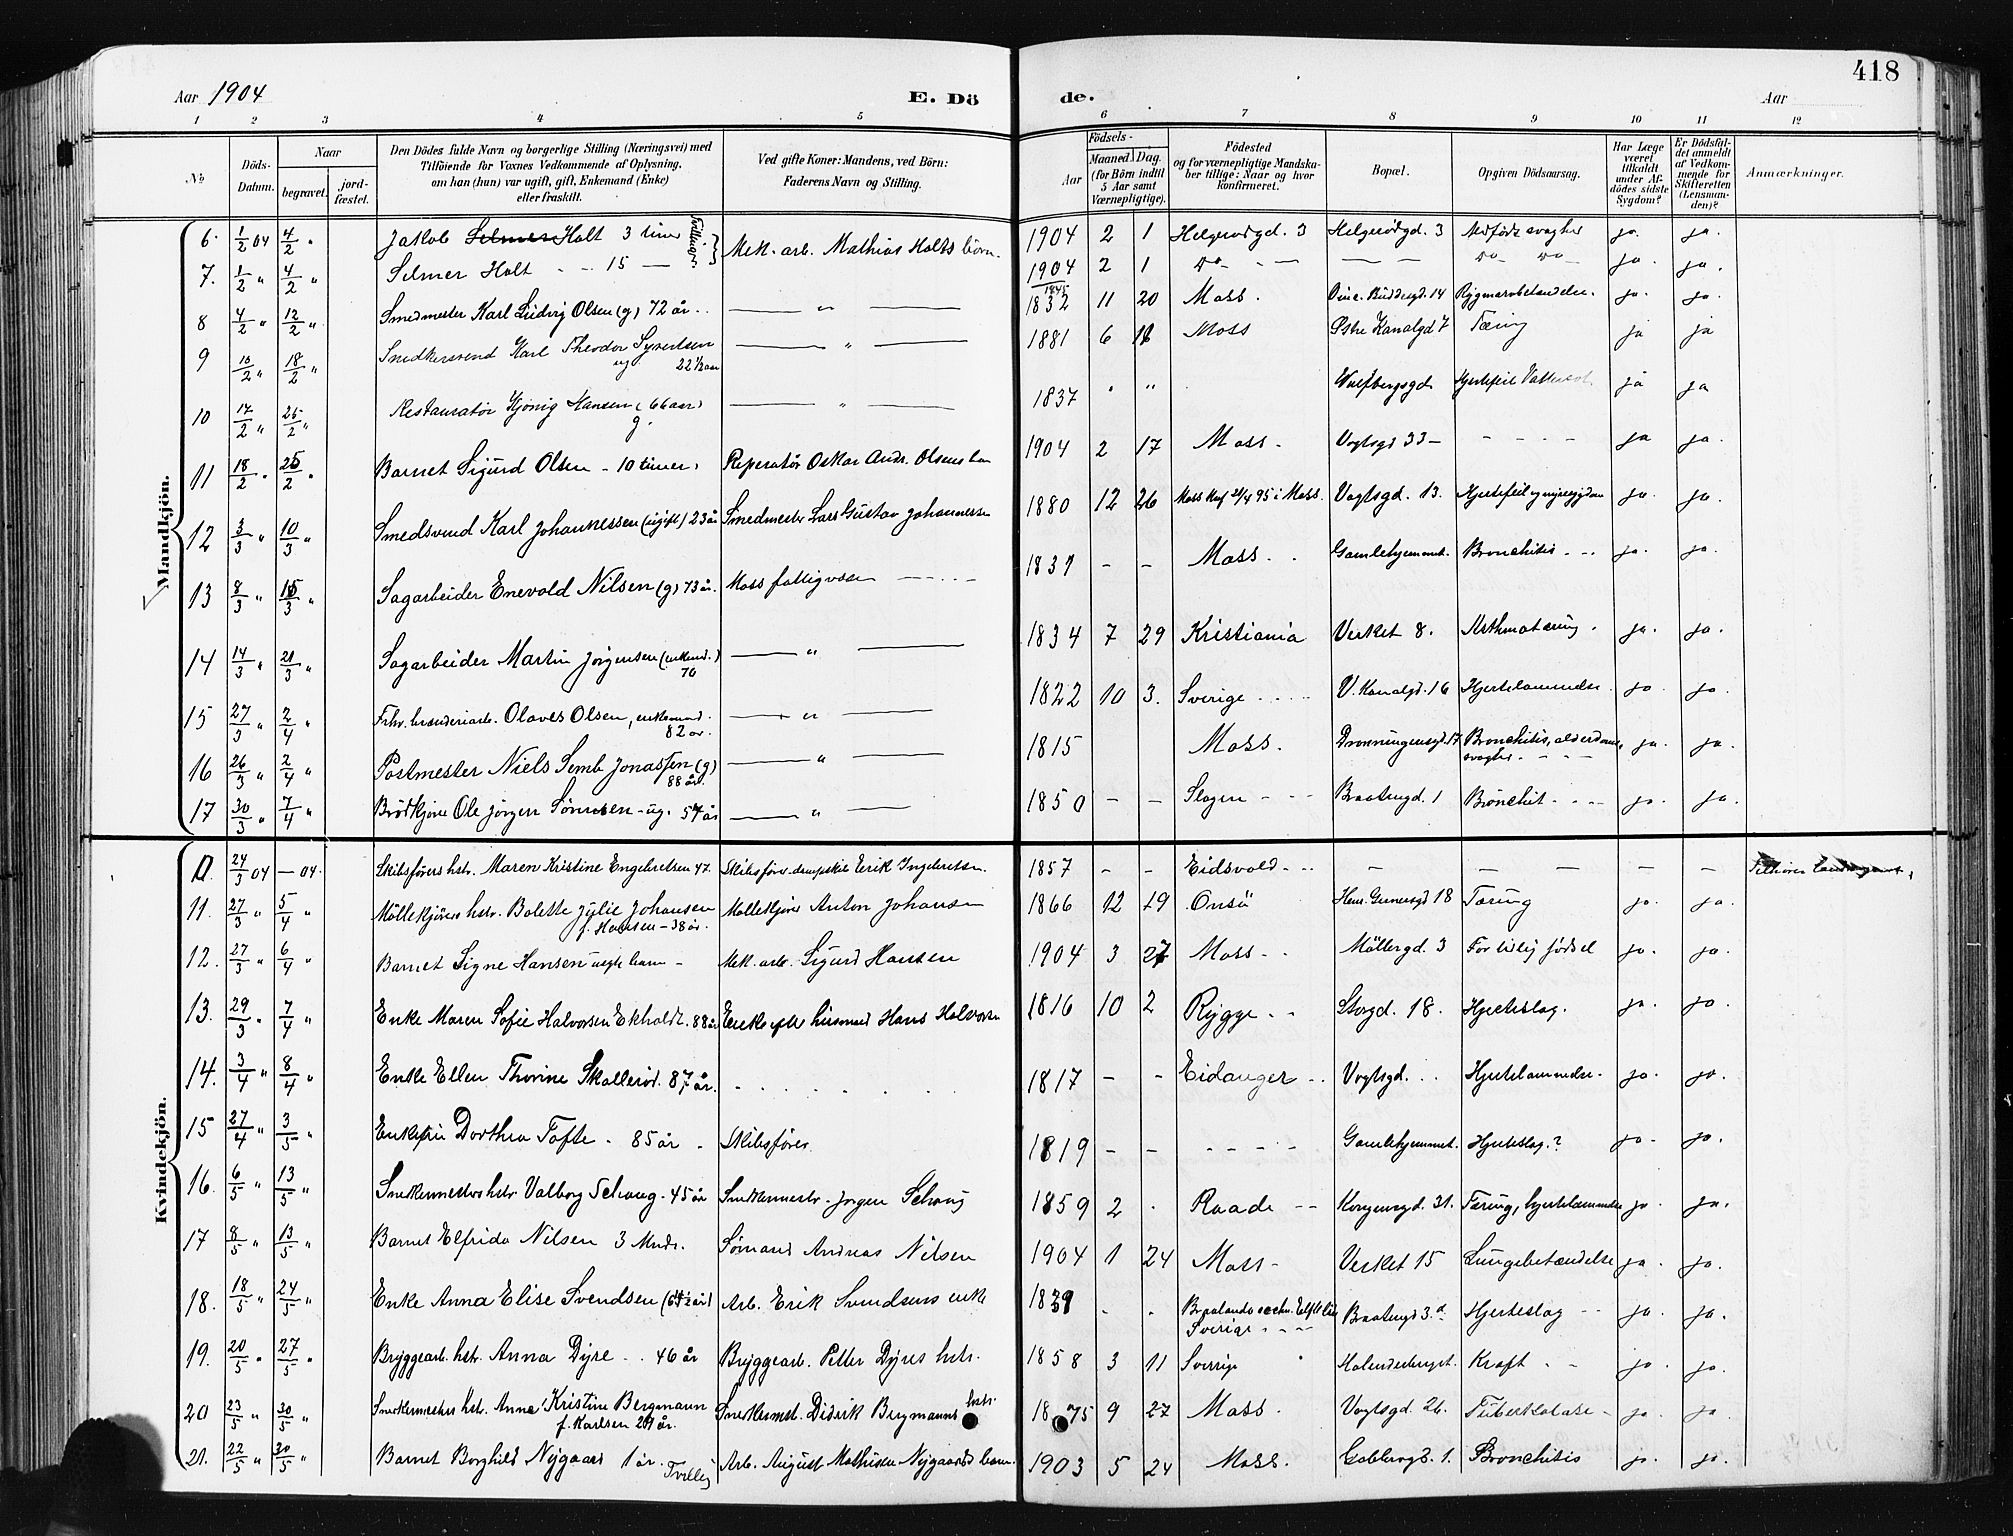 418
Aar 1904
E. Dö
de.
Aar
1 2 3 4 5 6 7 8 9 10 11 12
No
Döds-Datum.
Naar
begravet.
jord-fæstet.
Den Dödes fulde Navn og borgerlige Stilling (Næringsvei) med
Tilföiende for Voxnes Vedkommende af Oplysning,
om han (hun) var ugift, gift, Enkemand (Enke)
eller fraskilt.
Ved gifte Koner: Mandens, ved Börn:
Faderens Navn og Stilling.
Födsels-
Aar
Maaned Dag.
(for Börn indtil
5 Aar samt
Værnepligtige).
Födested
og for værnepligtige Mandska-
ber tillige: Naar og hvor
konfirmeret.
Bopæl.
Opgiven Dödsaarsag.
Har Læge
været
tilkaldt
under Af-
dödes sidste
Sygdom?
Er Dödsfal-
det anmeldt
af Vedkom-
mende for
Skifteretten
(Lensman-
den)?
Anmærkninger.
Mandkjön.
6. 1/2 04 4/2 " Jakob Selmer Holt 3 timer Mek. arb. Mathias Holts börn. 1904 2 1 Helgerödgd. 3 Helgerödgd. 3 Medfödt svaghed ja. ja.
7. 1/2 " 4/2 " Selmer Holt - - 15 — 1904 2 1 do - — — — do do - ja. ja.
8 4/2 " 12/2 " Smedmester Karl Ludvig Olsen (g) 72 år. — " — 1832 11 20 Moss. 14 Rygmarvbetændelse. ja. ja.
9 10/2 " 18/2 " Snedkersvend Karl Theodor Syvertsen ug 22 1/2 aar — " — 1881 6 18 Moss Östre Kanalgd 7 Tæring ja ja
10 17/2 " 25/2 " Restauratör Hjönig Hansen (66 aar) g. — " — 1837 " " Wulfsbergsgd Hjertefeil ja ja
11 18/2 " 25/2 " Barnet Sigurd Olsen - 10 timer. Reperatör Oskar Andr. Olsens 1904 2 17 Moss - Vogtsgd 33 - - - - - ja ja.
12 3/3 " 10/3 " Smedsvend Karl Johannessen (ugift) 23 år Smedmester Lars Gustav Johannessen 1880 12 26 Moss Konf. 95 i Moss. Vogtsgd. 13. Hjertefeil og nyresygdom ja. ja.
13 8/3 " 15/3 " Sagarbeider Enevold Nilsen (g) 73 år. Moss fattigvæsen - - - - 1831 - - Moss. . Gamlehjemmet. Bronchitis - - ja. ja.
14 14/3 " 21/3 " Sagarbeider Martin Jörgensen (enkem.) 70 — " — 1834 7 29 Kristiania Verket 8. Asthma tæring. ja. ja.
15 27/3 " 2/4 " Frhv. brænderiarb. Olaves Olsen, enkemand. 82 år. — " — 1822 10 3. Sverige - - - V. Kanalgd. 16 Hjertelammelse ja. ja.
16 26/3 " 2/4 " Postmester Niels Semb Jonassen (g) 88 år. — " — 1815 Moss. Dronningensgd. 17 Bronchitis, alderdoms- svaghed. - - - ja. ja.
17 30/3 " 7/4 " Brödkjörer Ole Jörgen Sörensen - ug. 54 år — " — 1850 - - Slagen - - - Braatengd. 1 Bronchit - - - ja. ja.
Kvindekjön.
10. 24/3 04 — 04. Skibsförers hstr. Maren Kristine Engebretsen 47. Skibsförer dampskib Eirik Ingebretsen. 1857 - - Eidsvold - - — - — — — Tilhörer
11. 27/3 " 5/4 " Möllekjörers hstr. Bolette Julie Johansen f. Hansen - 38 år. Möllekjörer Anton Johansen 1866 12 19 Onsö Hens. Gernersgd 18 Tæring ja. ja.
12. 27/3 " 6/4 " Barnet Signe Hansen uegte barn - Mek. arb. Sigurd Hansen 1904 3 27 Moss - - Möllergd. 3 For tidlig födsel ja. ja.
13. 29/3 " 7/4 " Enke Maren Sofie Halvorsen Ekholdt. 88 år Enke efter husmand Hans Halvorsen 1816 10 2 Rygge - - Storgd. 18. Hjerteslag. ja. ja.
14. 3/4 " 8/4 " Enke Ellen Thorine Skalleröd. 87 år. . . . . . 1817 - - Eidanger - - Vogtsgd. . . Hjertelammelse - ja. ja.
15 27/4 " 3/5 " Enkefru Dorthea Tofte - 85 år - Skibsförer 1819 - - - - - - - Gamlehjemmet. Hjerteslag? ja - ja.
16. 6/5 " 13/5 " Snekkermesters hstr Valborg Schaug - 45 år Snekkermestr. Jörgen Schaug 1859 2 . Raade - - Korgensgd. 31. Tæring, hjertelammelse ja. ja.
17 8/5 " 13/5 " Barnet Elfrida Nilsen 3 Mndr. Sömand Andreas Nilsen 1904 1 24 Moss - Verket 15 Lungebetændelse ja. ja.
18. 18/5 " 24/5 " Enke Anna Elise Svendsen (64 1/2 år) Arb. Erik Svendsens enke 1839 - - Sverige - - - Braatengd 3.a Hjerteslag - - ja. ja.
19. 20/5 " 27/5 " Bryggearb. hstr. Anna Dyre - - 46 år Bryggearb. Petter Dyres hstr. 1858 3 11 Sverige Kraft - - ja. ja.
20 23/5 " 30/5 " Snekkermesters hstr. Anna Kristine Bergmann f. Karlsen 29 år. Snekkermst. Didrik Bergmanns hstr. 1875 9 27 Moss. Vogtsgd. 26. Tuberkulose - ja. ja.
21. 22/5 " 30/5 " Barnet Borghild Nygaard 1 år. Tvilling Arb. August Mathisen Nygaards barn. 1903 5 24 Moss. 1. Bronchitis ja. ja.